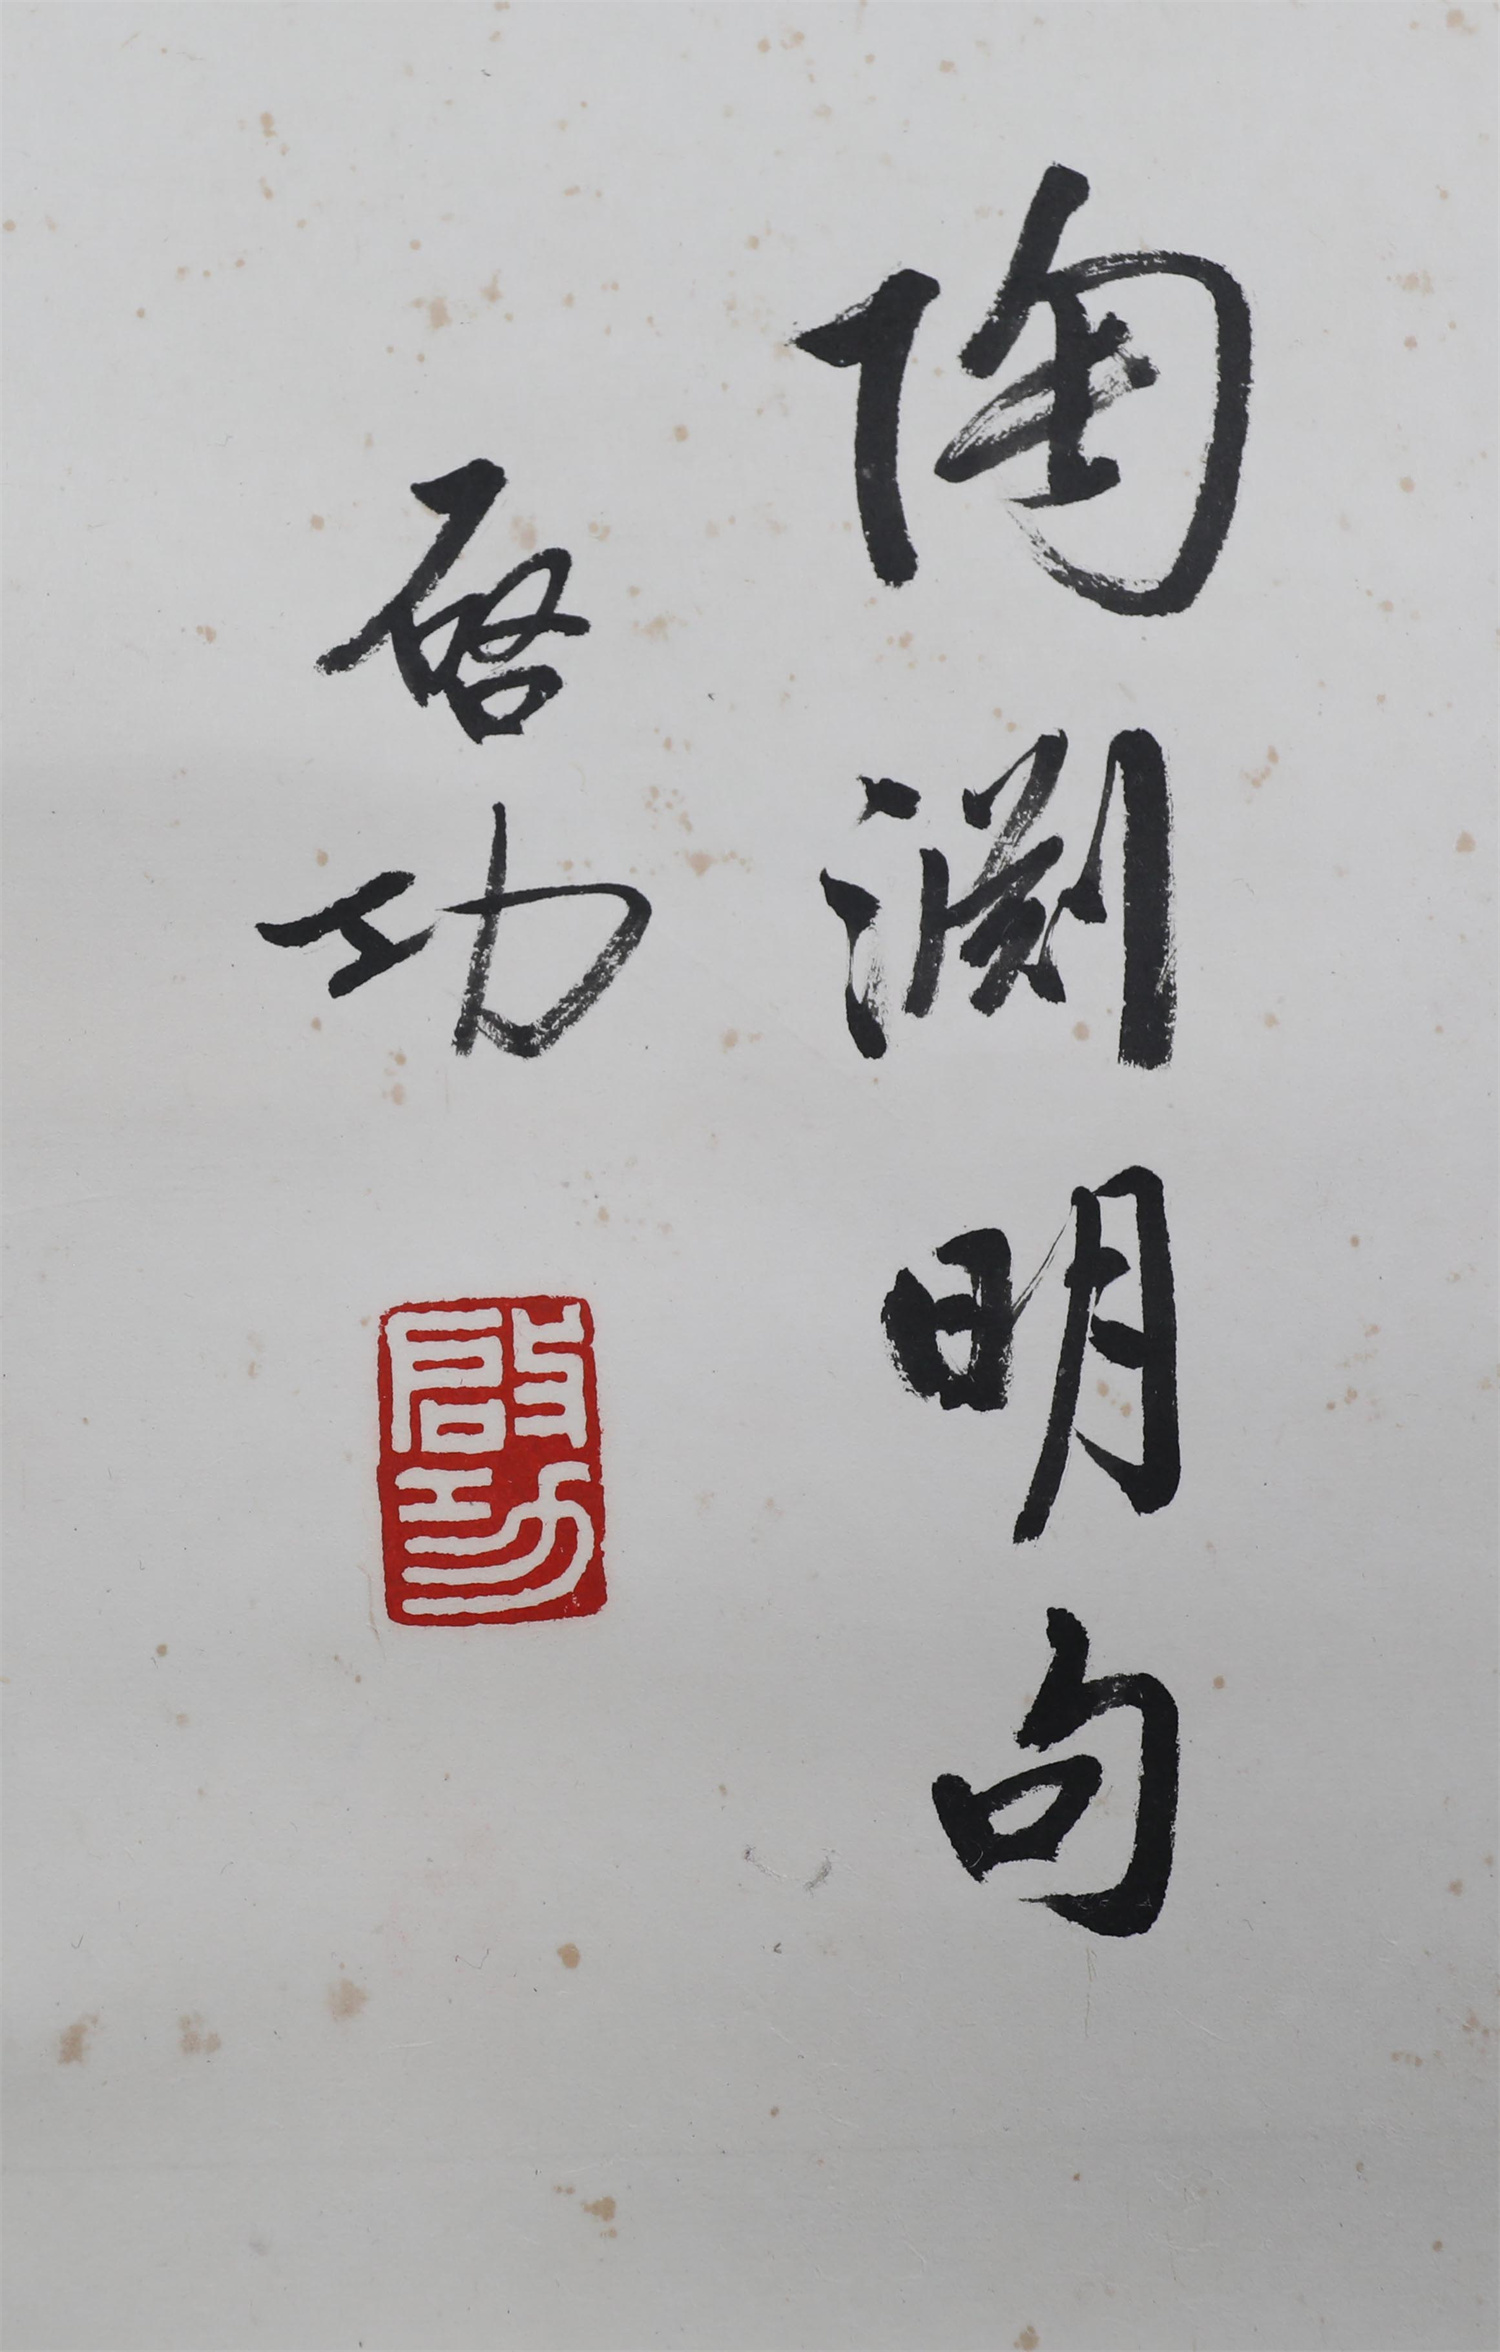 陶渊明句
启功
启功